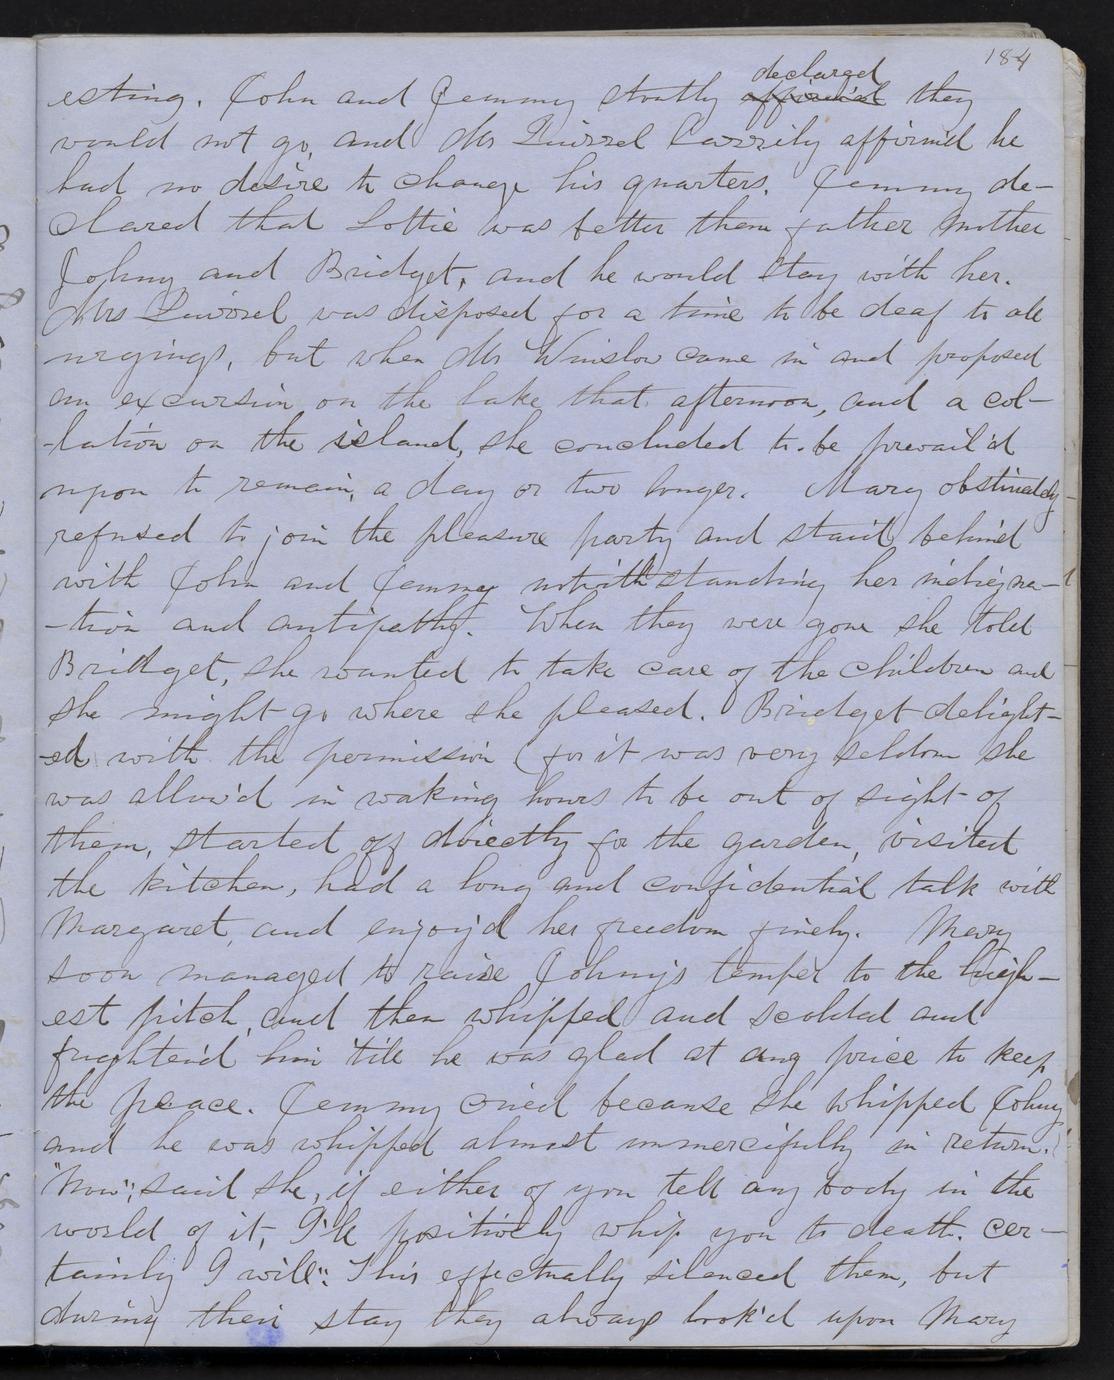 184
esting. John and Jemmy stoutly declared affirm'd they
would not go, and Mr Quirrel Carrily affirm'd he
had no desire to change his quarters. Jemmy de-
clared that Lottie was better them father mother
Johny and Bridget, and he would stay with her.
Mrs Quirrel was disposed for a time to be deaf to all
urgings, but when Mr Winslow came in and proposed
an excursion on the lake that afternoon, and a col-
-lation on the island, she concluded to be prevail'd
upon to remain, a day or two longer. Mary obstinately
refused to join the pleasure party and staid behind
with John and Jemmy notwithstanding her indigna-
-tion and antipathy. When they were gone she told
Bridget, she wanted to take care of the children and
she might go where she pleased. Bridget delight-
-ed with the permission (for it was very seldom she
was allow'd in waking hours to be out of sight of
them, started off directly for the garden, visited
the kitchen, had a long and confidential talk with
Margaret, and enjoy'd her freedom finely. Mary
soon managed to raise Johny's temper to the high-
est pitch, and then whipped and scolded and
frighten'd him till he was glad at any price to keep
the peace. Jemmy cried because she whipped Johny
and he was whipped almost unmercifully in return.
"Now", said she, if either of you tell any body in the
world of it, I'll positively whip you to death. cer-
tainly I will". This effectually silenced them, but
during their stay they always look'd upon Mary